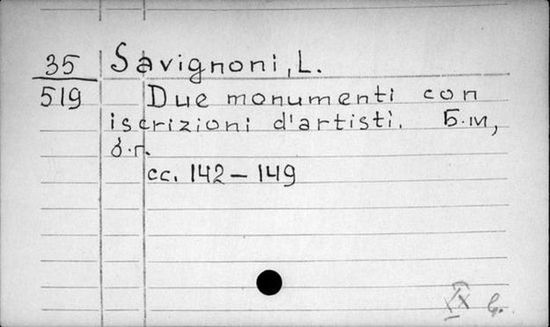 35 Savignoni, L.
519 Due monumenti con
iscrizioni d'artisti. Б.м,
б.г.
cc. 142 – 149
IX б.